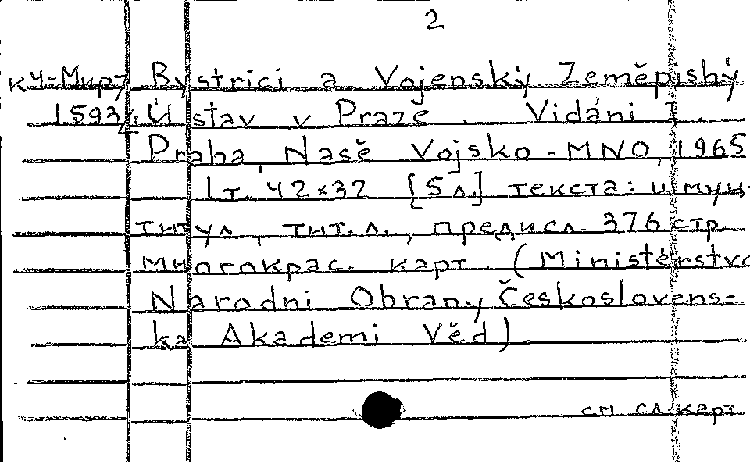 2
КЧ-Мир7 Bystrici a Vojenský Zeměpisný
1593 Ústav v Praze. Vidáni I.
Praha, Nasě Vojsko - MNO, 1965
1 т. 42×32 [5 л.] текста: и муч
титул, тит. л., предисл. 376 стр.
многокрас. карт. (Ministérstvo
Národni Obrany, Československ-
ka Akademi Věd)
см. сл. карт.